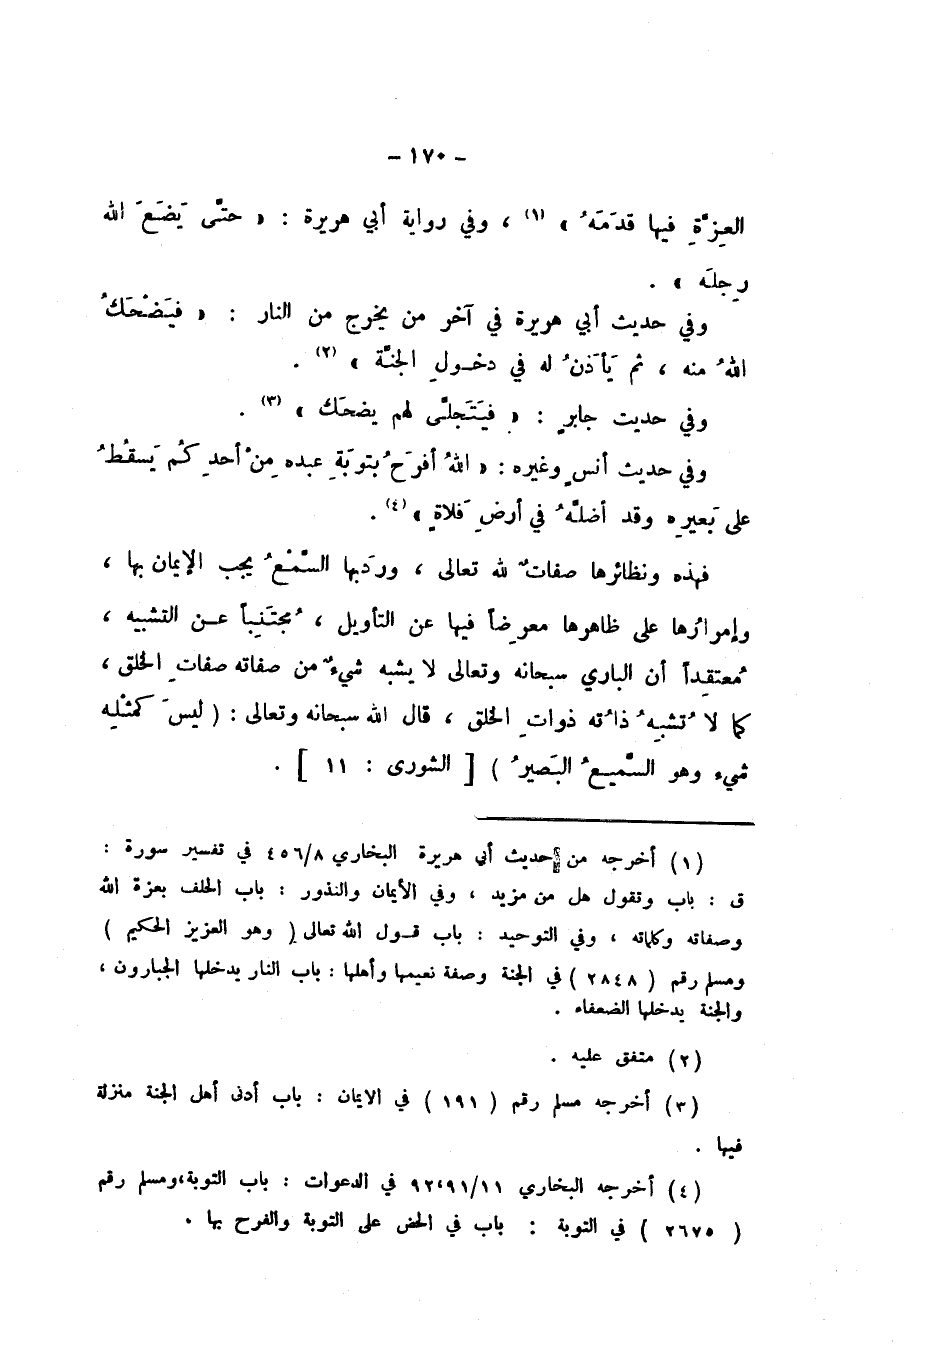 - ١٧٠ -
العِزَّةِ فيها قدَمَهُ » (١) ، وفي رواية أبي هريرة : « حتَّى يَضَعَ اللهُ
رِجلَه » .
وفي حديث أبي هريرة في آخر من يخرج من النار : « فيَضْحَكُ
اللهُ منه ، ثم يَأذَنُ له في دخولِ الجنَّة » (٢) .
وفي حديث جابرٍ : « فيَتَجلَّى لهم يضحَك » (٣) .
وفي حديث أنسٍ وغيره : « اللهُ أفرَحُ بتوبَةِ عبده مِنْ أحدِكُم يَسقُطُ
على بَعيرِه وقد أضلَّهُ في أرضِ فَلاةٍ » (٤) .
فهذه ونظائرها صفاتٌ لله تعالى ، وردَبها السَّمْعُ يجب الإيمان بها ،
وإمرارُها على ظاهرها معرِضاً فيها عن التأويل ، مُجتَنِباً عن التشبيه ،
مُعتقِداً أن الباري سبحانه وتعالى لا يشبه شيءٌ من صفاته صفاتِ الخلق ،
كما لا تُشبِهُ ذاتُه ذواتِ الخلق ، قال الله سبحانه وتعالى : ( ليسَ كمثْلِه
شيء وهو السَّميعُ البَصيرُ ) [ الشورى : ١١ ] .
(١) أخرجه من حديث أبي هريرة البخاري ٤٥٦/٨ في تفسير سورة :
ق : باب وتقول هل من مزيد ، وفي الأيمان والنذور : باب الحلف بعزة الله
وصفاته وكلماته ، وفي التوحيد : باب قول الله تعالى ( وهو العزيز الحكيم )
ومسلم رقم ( ٢٨٤٨ ) في الجنة وصفة نعيمها وأهلها : باب النار يدخلها الجبارون ،
والجنة يدخلها الضعفاء .
(٢) متفق عليه .
(٣) أخرجه مسلم رقم ( ١٩١ ) في الايمان : باب أدنى أهل الجنة منزلة
فيها .
(٤) أخرجه البخاري ٩٢،٩١/١١ في الدعوات : باب التوبة،ومسلم رقم
( ٢٦٧٥ ) في التوبة : باب في الحض على التوبة والفرح بها .